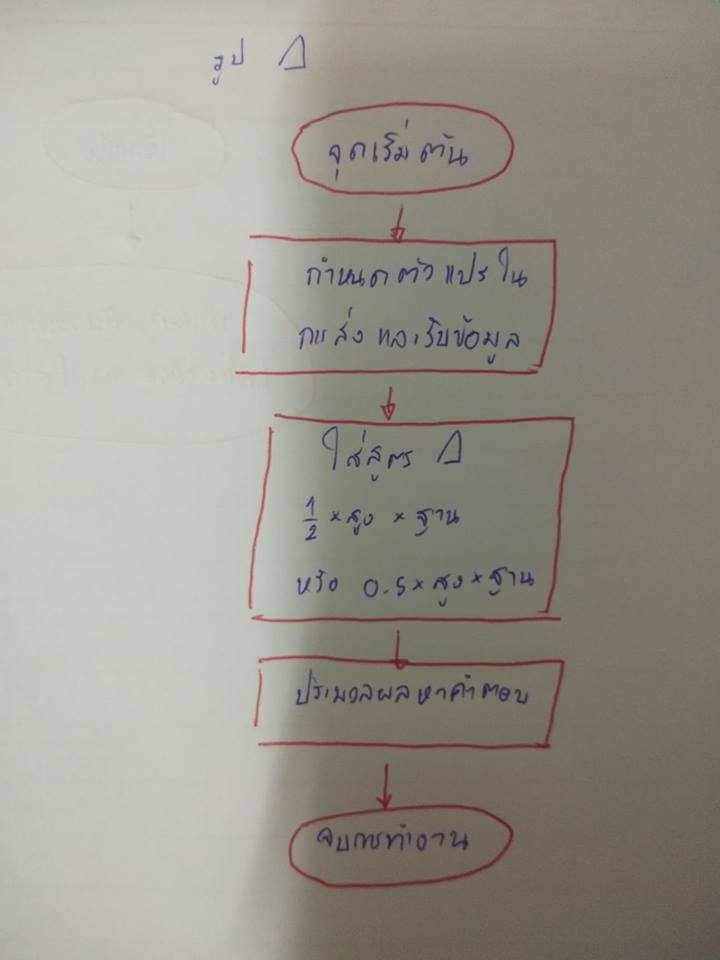 รูป
จุดเริ่มต้น
กำหนดตัวแปรใน
การส่งและรับข้อมูล
ใส่สูตร
1/2 × สูง × ฐาน
หรือ 0.5 × สูง × ฐาน
ประมวลผลหาคำตอบ
จบการทำงาน